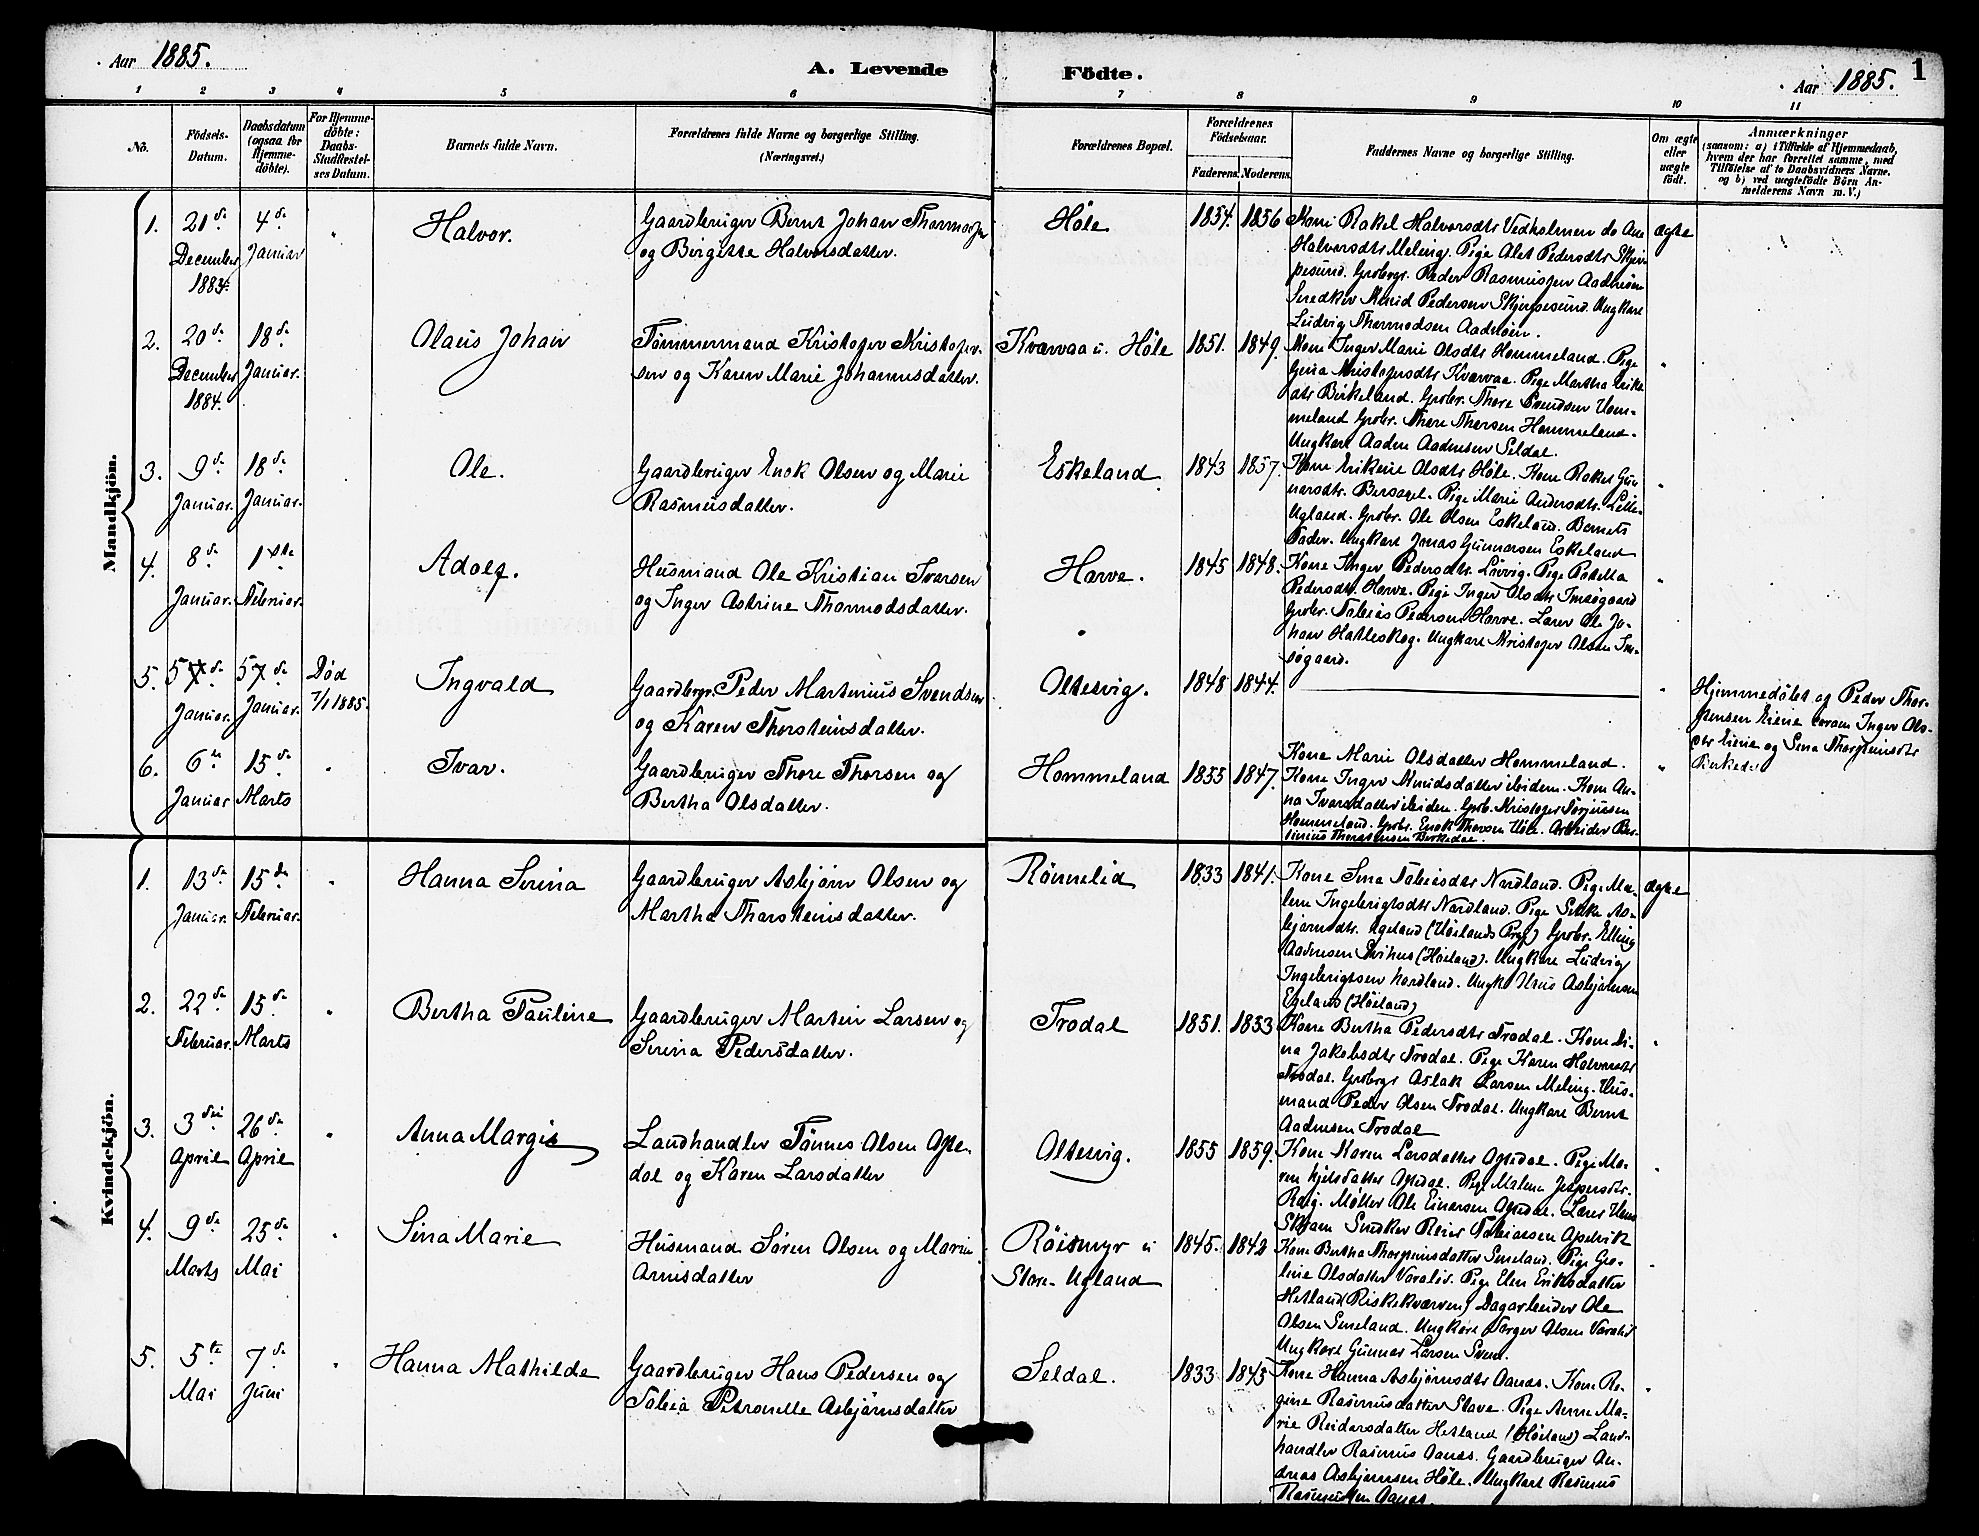 Aar 1885.
A. Levende Födte.
Aar 1885.
1
1 2 3 4 5 6 7 8 9 10 11
No.
Födsels-
Datum.
Daabsdatum
(ogsaa for
Hjemme-
döbte).
For Hjemme-
döbte:
Daabs-
Stadfæstel-
ses Datum.
Barnets fulde Navn.
Forældrenes fulde Navne og borgerlige Stilling.
(Næringsvei.)
Forældrenes Bopæl.
Forældrenes
Födselsaar.
Faderens. Moderens.
Faddernes Navne og borgerlige Stilling.
Om ægte
eller
uægte
födt.
Anmærkninger
(saasom: a) i Tilfælde af Hjemmedaab,
hvem der har forrettet samme, med
Tilföielse af to Daabsvidners Navne.
og b) ved uægtefödte Börn An-
melderens Navn m. V.)
Mandkjön.
1.
21de
December
1884.
4de
Januar
Halvor.
Gaardbruger Bernt Johan Thormodsen
og Birgitte Halvorsdatter.
Høle
1854. 1856
Kone Rakel Halvorsdtr Vedholmen do Ane
Halvorsdtr Meling. Pige Alet Pedersdtr Skjør-
pesund. Grdbrgr. Peder Rasmussen Aadnøen
Snedker Knud Pedersen Skjørpesund. Ungkarl
Ludvig Thormodsen Aadnøen.
ægte
2.
20de
December
1884.
18de
Januar.
Olaus Johan
Tømmermand Kristofer Kristofer-
sen og Karen Marie Johannesdatter.
Kvævaa u. Höle
1851. 1849.
Kone Inger Marie Olsdtr Hommeland. Pige
Gina Kristofersdtr Kvævaa. Pige Martha Eriks-
dtr Birkeland. Grdbr. Thore Svendsen Hom-
meland Grdbr. Thore Thorsen Hommeland.
Ungkarl Aaden Aadnesen Seldal.
3.
9de
Januar.
18de
Januar.
Ole.
Gaardbruger Enok Olsen og Marie
Rasmusdatter.
Eskeland
1843 1857.
Kone Erikine Olsdtr Høle. Kone Rakel Gun-
narsdtr. Bersagel. Pige Marie Andersdtr. Lille-
Ugland. Grdbr. Ole Olsen Eskeland. Barnets
Fader. Ungkarl Jonas Gunnarsen Eskeland
4.
8de
Januar.
1ste
Februar.
Adolf.
Husmand Ole Kristian Ivarsen
og Inger Astrine Thormodsdatter.
Harve.
1845 1848.
Kone Inger Pedersdtr. Lövvig. Pige
Pedersdtr. Harve. Pige Inger Olsdtr Imsøgaard
Grdbr. Tobias Pedersen Harve. Lærer Ole Jo-
han Hatleskog. Ungkarl Kristofer Olsen Im-
søgaard.
5.
5de
Januar.
5de
Januar.
Død
7/1 1885.
Ingvald
Gaardbrgr. Peder Martinius Svendsen
og Karen Thorsteinsdatter.
Oltesvig.
1848 1844.
Hjemmedøbt af Peder Thor-
sensen Eiene coram Inger Ols-
dtr Eiene og Sena Thorsteinsdtr
6.
6te
Januar
15de
Marts
Ivar.
Gaardbruger Thore Thorsen og
Bertha Olsdatter.
Hommeland
1855 1847.
Kone Marie Olsdatter Hommeland.
Kone Inger Knudsdatter ibidem. Kone An-
na Ivarsdatter ibidem. Grdb. Kristofer Torjussen
Hommeland. Grdbr. Enok Thorsen Høle. Arbeider Ber-
tinius Thorsteinsen Birkedal.
Kvindekjön.
1.
13de
Januar.
15de
Februar.
Hanna Serina
Gaardbruger Asbjørn Olsen og
Martha Thorsteinsdatter.
Rönnelid
1833 1841.
Kone Sina Tobiasdtr Nordland. Pige Ma-
lene Ingebrigtsdtr Nordland. Pige Silke As-
bjørnsdtr. Egeland (Høilands Prgj) Grdbr. Elling
Aadnesen Svihus (Høiland). Ungkarl Ludvig
Ingebrigtsen Nordland. Ungk Asbjørnsen
Egeland (Høiland)
ægte
2.
22de
Februar.
15de
Marts
Bertha Pauline
Gaardbruger Martin Larsen og
Serina Pedersdatter.
Trodal
1851. 1853
Kone Bertha Pedersdtr Trodal. Kone Di-
na Jakobsdtr Trodal. Pige Karen Halvorsdtr
Trodal. Grdbrgr Aslak Larsen Meling. Hus-
mand Peder Olsen Trodal. Ungkarl Bernt
Aadnesen Trodal
3.
3die
April
26de
April
Anna Margit
Landhandler Tønnes Olsen Apse-
dal og Karen Larsdatter
Oltesvig.
1855 1859.
Kone Karen Larsdatter Apsedal. Pige Ma-
ren Kjelsdatter Apsedal. Pige Malena Jespersdtr.
Møller Ole Einersen Apsedal. Lærer Hans
Skjam Snedker Reier Tobiassen Apelvik
4.
9de
Marts
25de
Mai
Sina Marie
Husmand Søren Olsen og Marie
Arnesdatter
Röismyr u
Store-Ugland
1845. 1842
Kone Bertha Thorsteinsdatter Smeland. Pige Go-
line Olsdatter Varalid. Pige Elen Eriksdatter
Hetland (Riskekværven) Dagarbeider Ole
Olsen Smeland. Ungkarl Olsen Varalid
Ungkarl Gunnar Larsen
5.
5te
Mai
7de
Juni
Hanna Mathilde
Gaardbruger Hans Pedersen og
Tobia Petronelle Asbjørnsdatter
Seldal.
1833 1845
Kone Hanna Asbjørnsdtr Aanes. Kone Re-
gine Rasmusdatter Slave. Pige Anne Ma-
rie Reidarsdatter Hetland (Høiland) Land-
handler Rasmus Aanes. Gaardbruger An-
dreas Asbjørnsen Høle. Ungkarl Rasmus
Rasmussen Aanes.